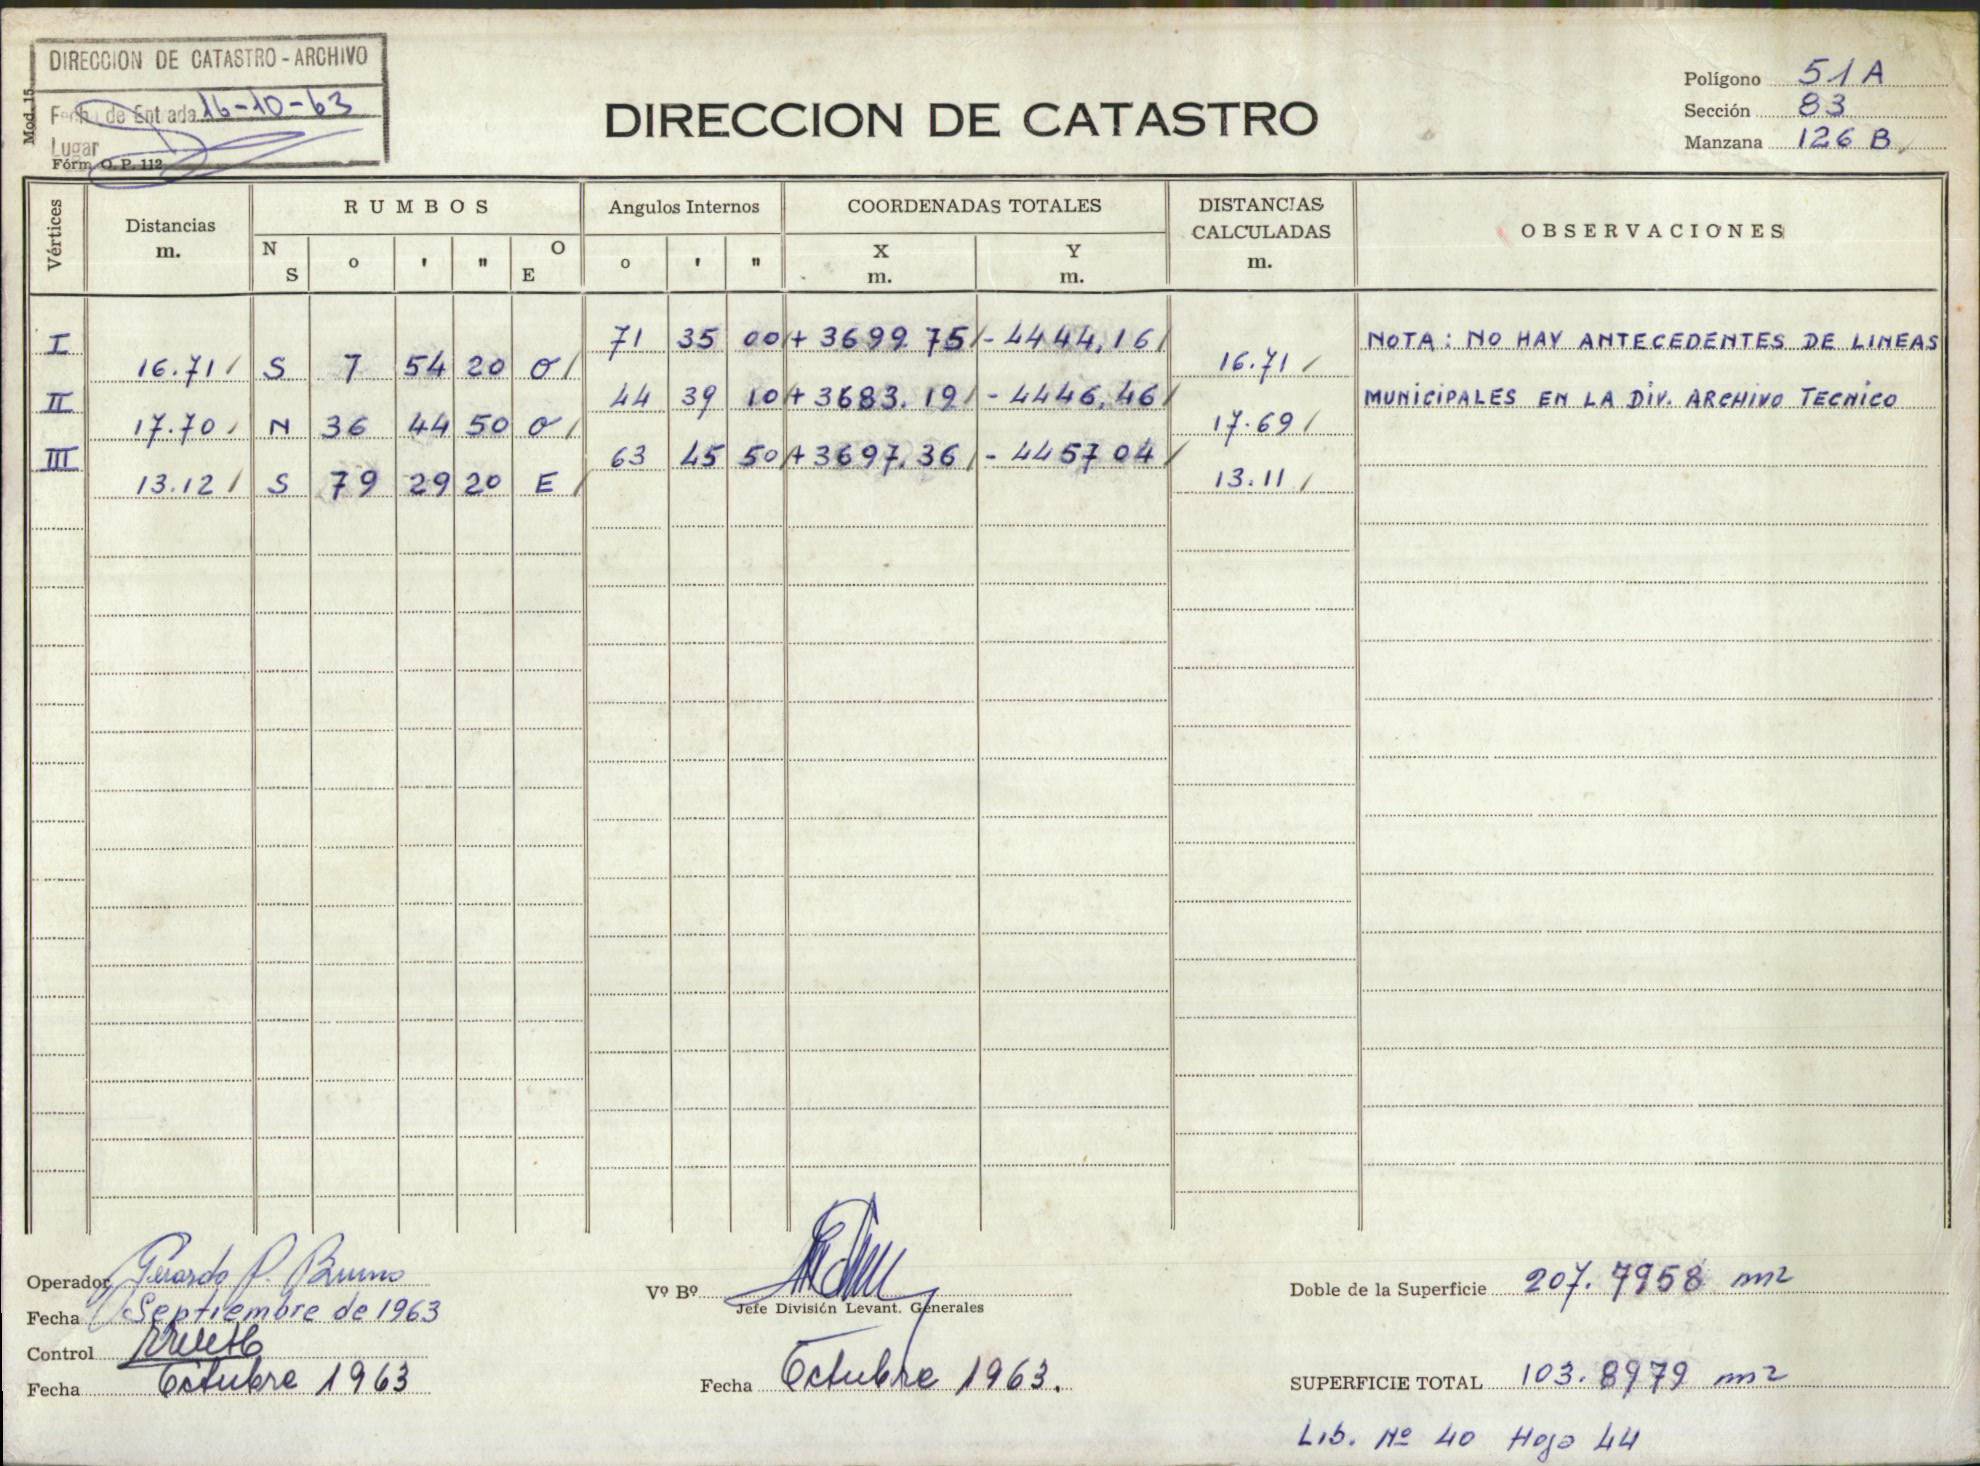 DIRECCION DE CATASTRO - ARCHIVO
Fecha de Entrada 16-10-63
Lugar
Mod. 15
Fórm. O. P. 112
DIRECCION DE CATASTRO
Polígono 51 A
Sección 83
Manzana 126 B
Vértices Distancias m. RUMBOS Angulos Internos COORDENADAS TOTALES DISTANCIAS CALCULADAS m. OBSERVACIONES
N S o ' " O E o ' " X m. Y m.
I 71 35 00 + 3699.75 - 4444,16 NOTA: NO HAY ANTECEDENTES DE LINEAS
16.71 S 7 54 20 O 16.71
II 44 39 10 + 3683.19 - 4446,46 MUNICIPALES EN LA DIV. ARCHIVO TECNICO
17.70 N 36 44 50 O 17.69
III 63 45 50 + 3697.36 - 4457 04
13.12 S 79 29 20 E 13.11
Operador Gerardo P. Bruno
Fecha Septiembre de 1963
Control
Fecha Octubre 1963
Vº Bº
Jefe División Levant. Generales
Fecha Octubre 1963.
Doble de la Superficie 207.7958 m2
SUPERFICIE TOTAL 103.8979 m2
Lib. Nº 40 Hoja 44